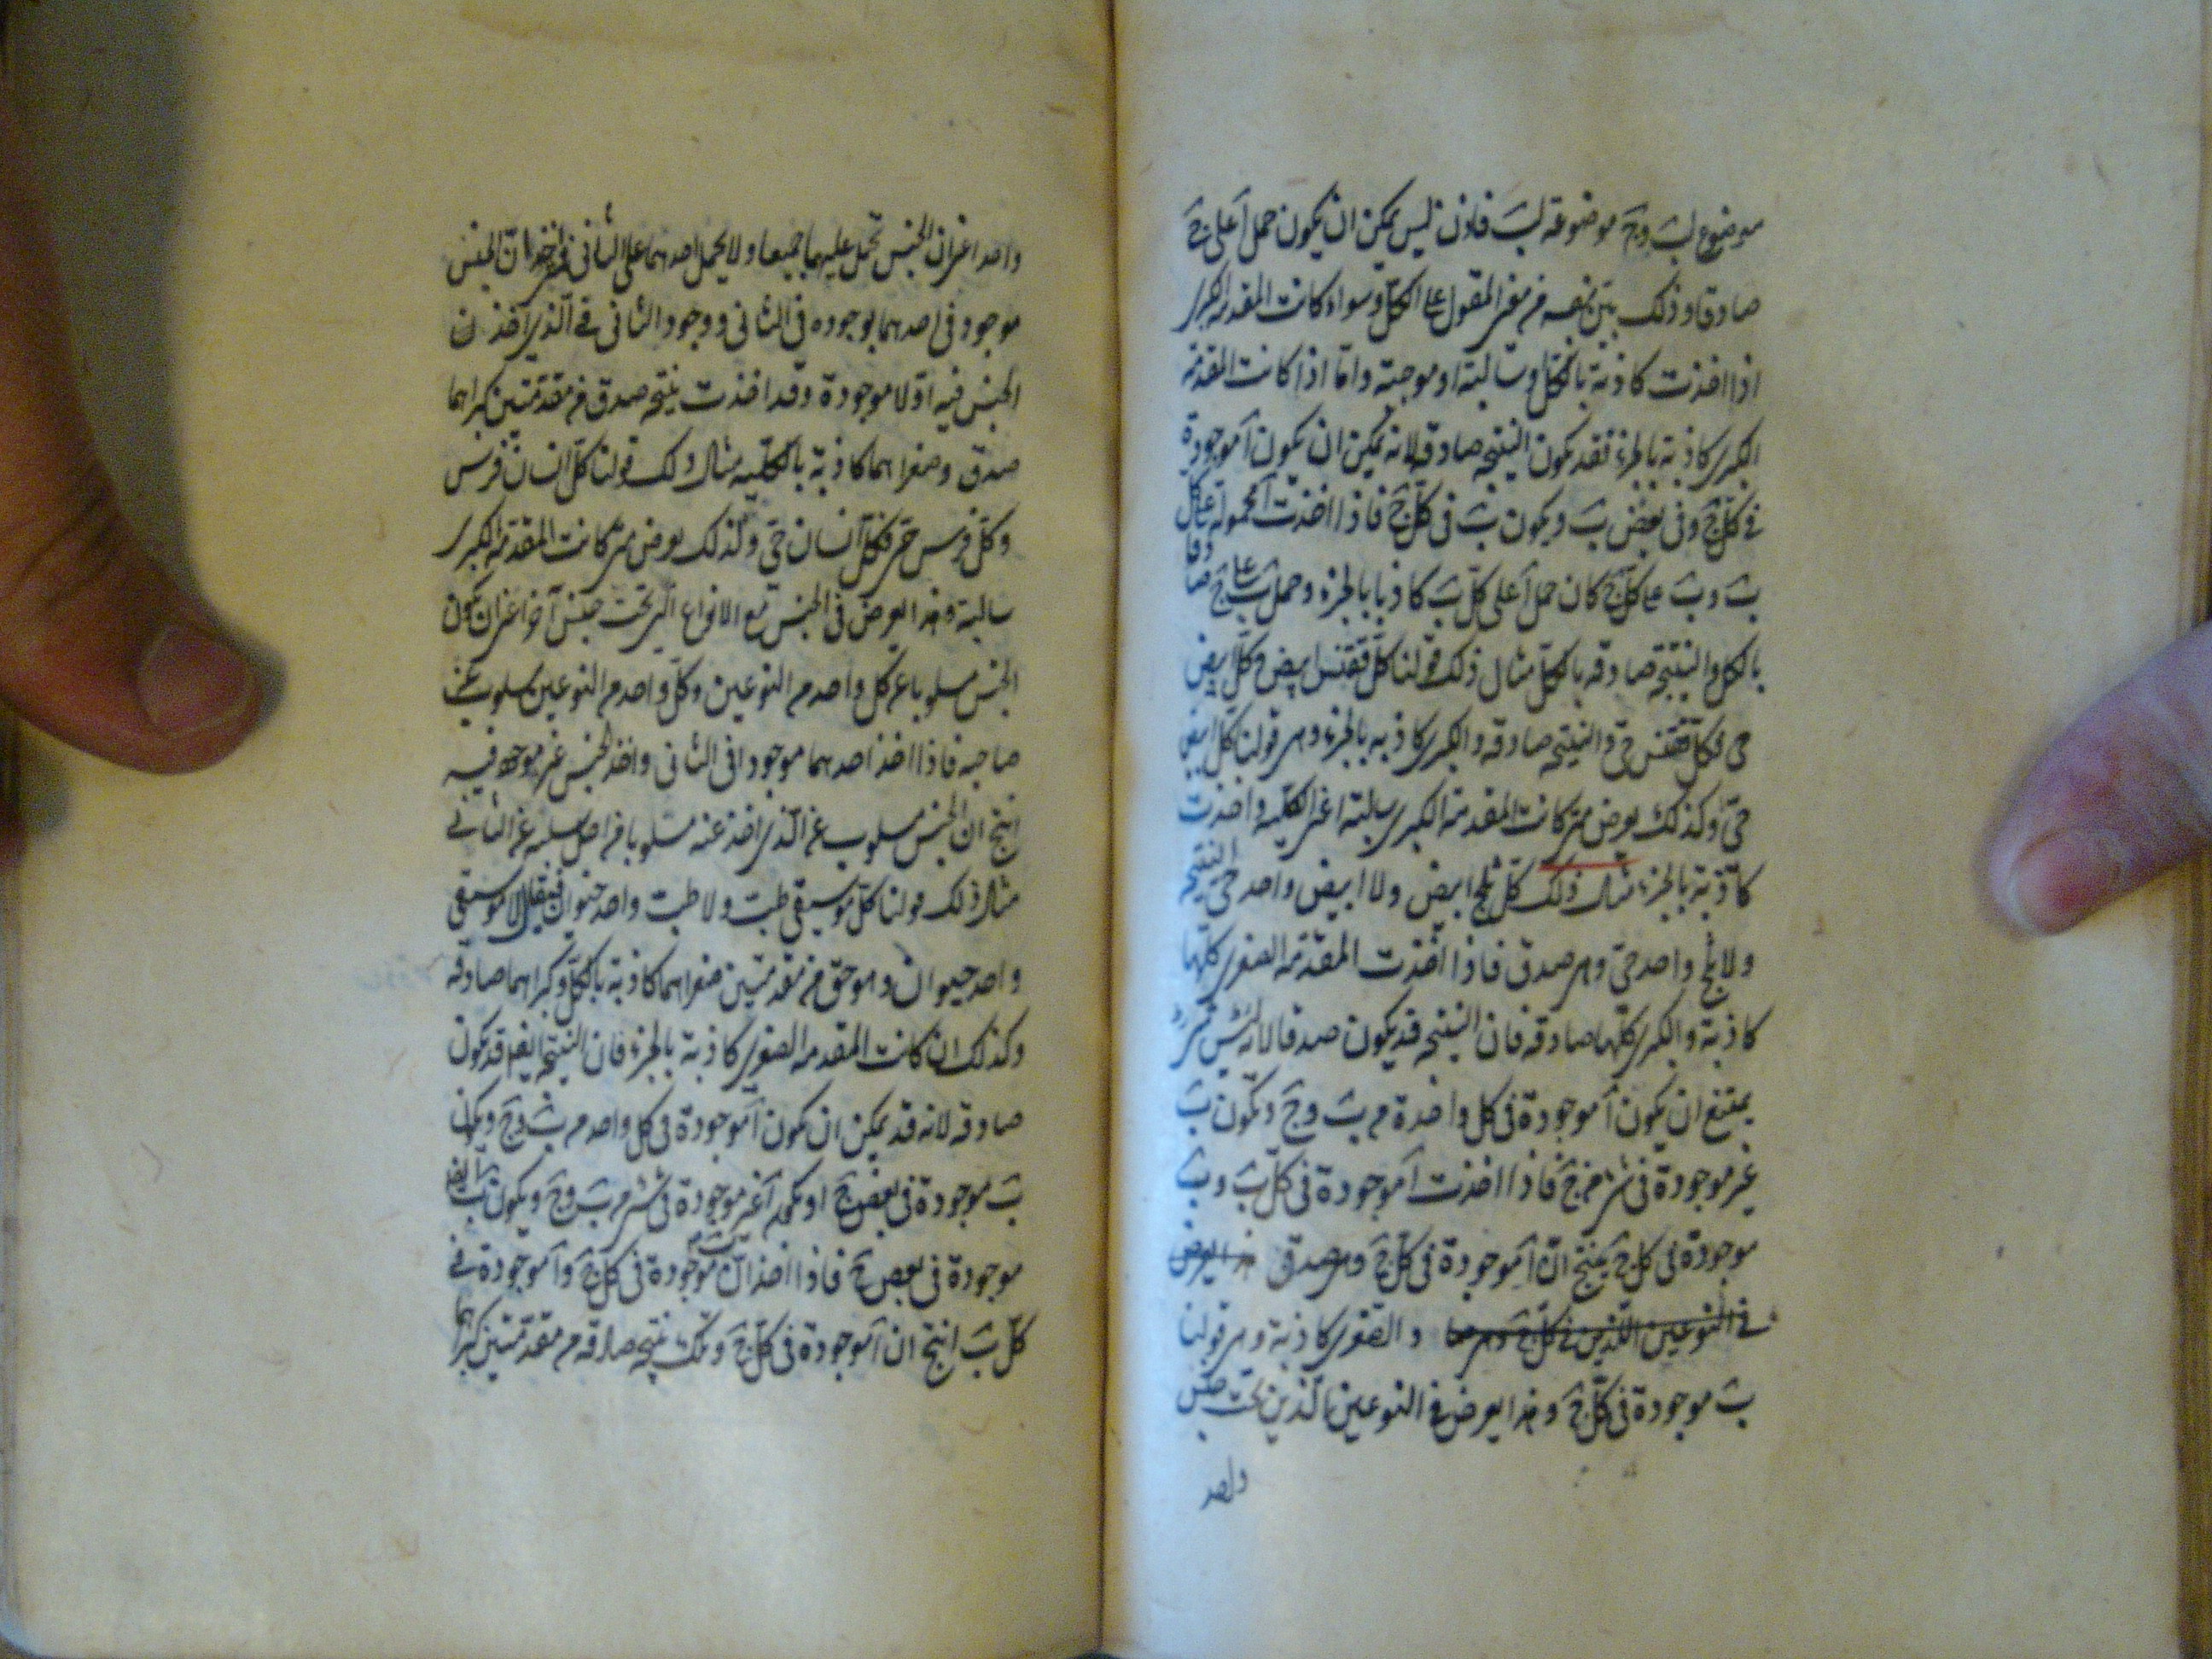 موضوع لبَ وجَ موضوعة لبَ فاذن ليس يمكن ان يكون حمل آ على جَ
صادقا وذلك بيّن بنفسه من معنى المقول على الكلّ وسواء كانت المقدمة الكبرى
اذا اخذت كاذبة بالكلّ وسالبة او موجبة وامّا اذا كانت المقدمة
الكبرى كاذبة بالجزء فقد تكون النتيجة صادقة لانه يمكن ان يكون آ موجودة
في كلّ جَ وفى بعض بَ ويكون بَ فى كلّ جَ فاذا اخذت آ محمولة على كل
بَ وبَ على كلّ جَ كان حمل آ على كلّ بَ كاذبا بالجزء وحمل بَ على جَ صادقا
بالكل والنتيجة صادقه بالكلّ مثال ذلك قولنا كلّ ققنس ابيض وكلّ ابيض
حي فكلّ ققنس حيّ والنتيجه صادقه والكبرى كاذبه بالجزء وهى قولنا كل ابيض
حيّ وكذلك يعرض متى كانت المقدمة الكبرى سالبة اعنى الكلّيه واخذت
كاذبة بالجزء مثال ذلك كلّ ثلج ابيض ولا ابيض واحد حيّ النتيجه
ولا ثلج واحد حيّ وهى صدق فاذا اخذت المقدّمة الصغرى كلّها
كاذبة والكبرى كلّها صادقه فان النتيجه قد يكون صدقا لانه ليس شىء
يمتنع ان يكون آ موجودة فى كل واحدة من بَ وجَ وتكون بَ
غير موجودة فى شىء من جَ فاذا اخذت آ موجودة فى كلّ بَ وبَ
موجودة فى كل جَ ينتج انّ آ موجودة فى كلّ جَ وهى صدق هذا يعرض
في النوعين اللذين فى كلّ جَ وهى والصغرى كاذبة وهى قولنا
بَ موجودة فى كلّ جَ وهذا يعرض فى النوعين الذين تحت جنس
واحد
واحد اعنى ان الجنس تحمل عليهما جميعا ولا يحمل احدهما على الثانى ان الجنس
موجود فى احدهما بوجوده فى الثانى ووجود الثانى فى الذى اخذ ان
الجنس فيه اوّلا موجودة وقد اخذت نتيجه صدق من مقدمتين كبراهما
صدق وصغراهما كاذبة بالكلّيه مثال ذلك قولنا كلّ انسان فرس
وكلّ فرس حىّ فكلّ انسان حىّ وكذلك يعرض متى كانت المقدمة الكبرى
سالبة وهذا يعرض فى الجنس مع الانواع التى تحت جنس آخر اعنى ان يكون
الجنس مسلوبا عن كل واحد من النوعين وكلّ واحد من النوعين مسلوب عن
صاحبه فاذا اخذ احدهما موجودا فى الثانى واخذ الجنس غير موجود فيه
انتج ان الجنس مسلوب عن الّذى اخذ عنه مسلوبا من اجل سلبه عن الثانى
مثال ذلك قولنا كلّ موسيقى طب ولا طب واحد حيوان فلا موسيقى
واحد حيوان وهو حق من مقدمتين صغراهما كاذبة بالكلّ وكبراهما صادقه
وكذلك ان كانت المقدمه الصغرى كاذبة بالجزء فان النتيجه ايضا قد يكون
صادقه لانه قد يمكن ان يكون آ موجودة فى كل واحد من بَ وجَ ويكون
بَ موجودة فى بعض جَ او يكون آ غير موجودة فى شىء من بَ وجَ ويكون بَ ايضا
موجودة فى بعض جَ فاذا اخذ انّ بَ موجودة فى كلّ جَ وآ موجودة فى
كلّ بَ انتج ان آ موجودة فى كلّ جَ وتلك نتيجه صادقه من مقدمتين كبراهما